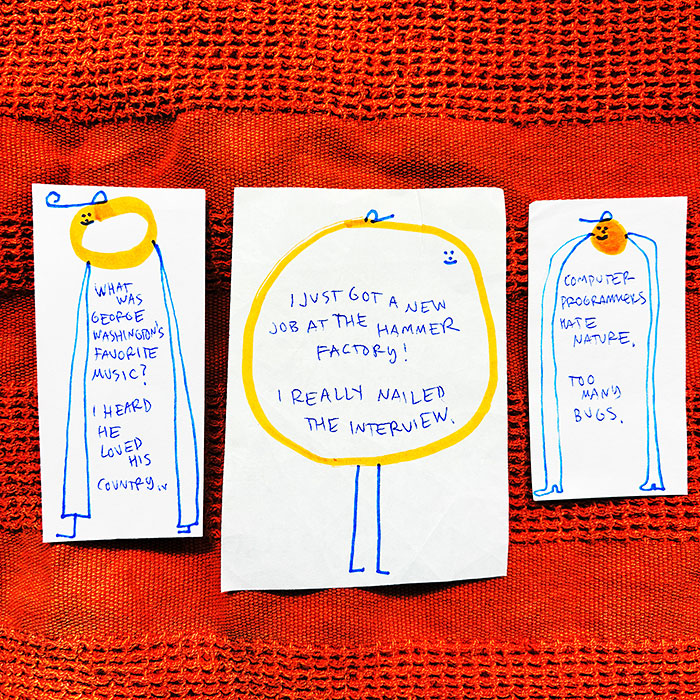 WHAT
WAS
GEORGE
WASHINGTON'S
FAVORITE
MUSIC?
I HEARD
HE
LOVED
HIS
COUNTRY..
I JUST GOT A NEW
JOB AT THE HAMMER
FACTORY!
I REALLY NAILED
THE INTERVIEW.
COMPUTER
PROGRAMMERS
HATE
NATURE.
TOO
MANY
BUGS.